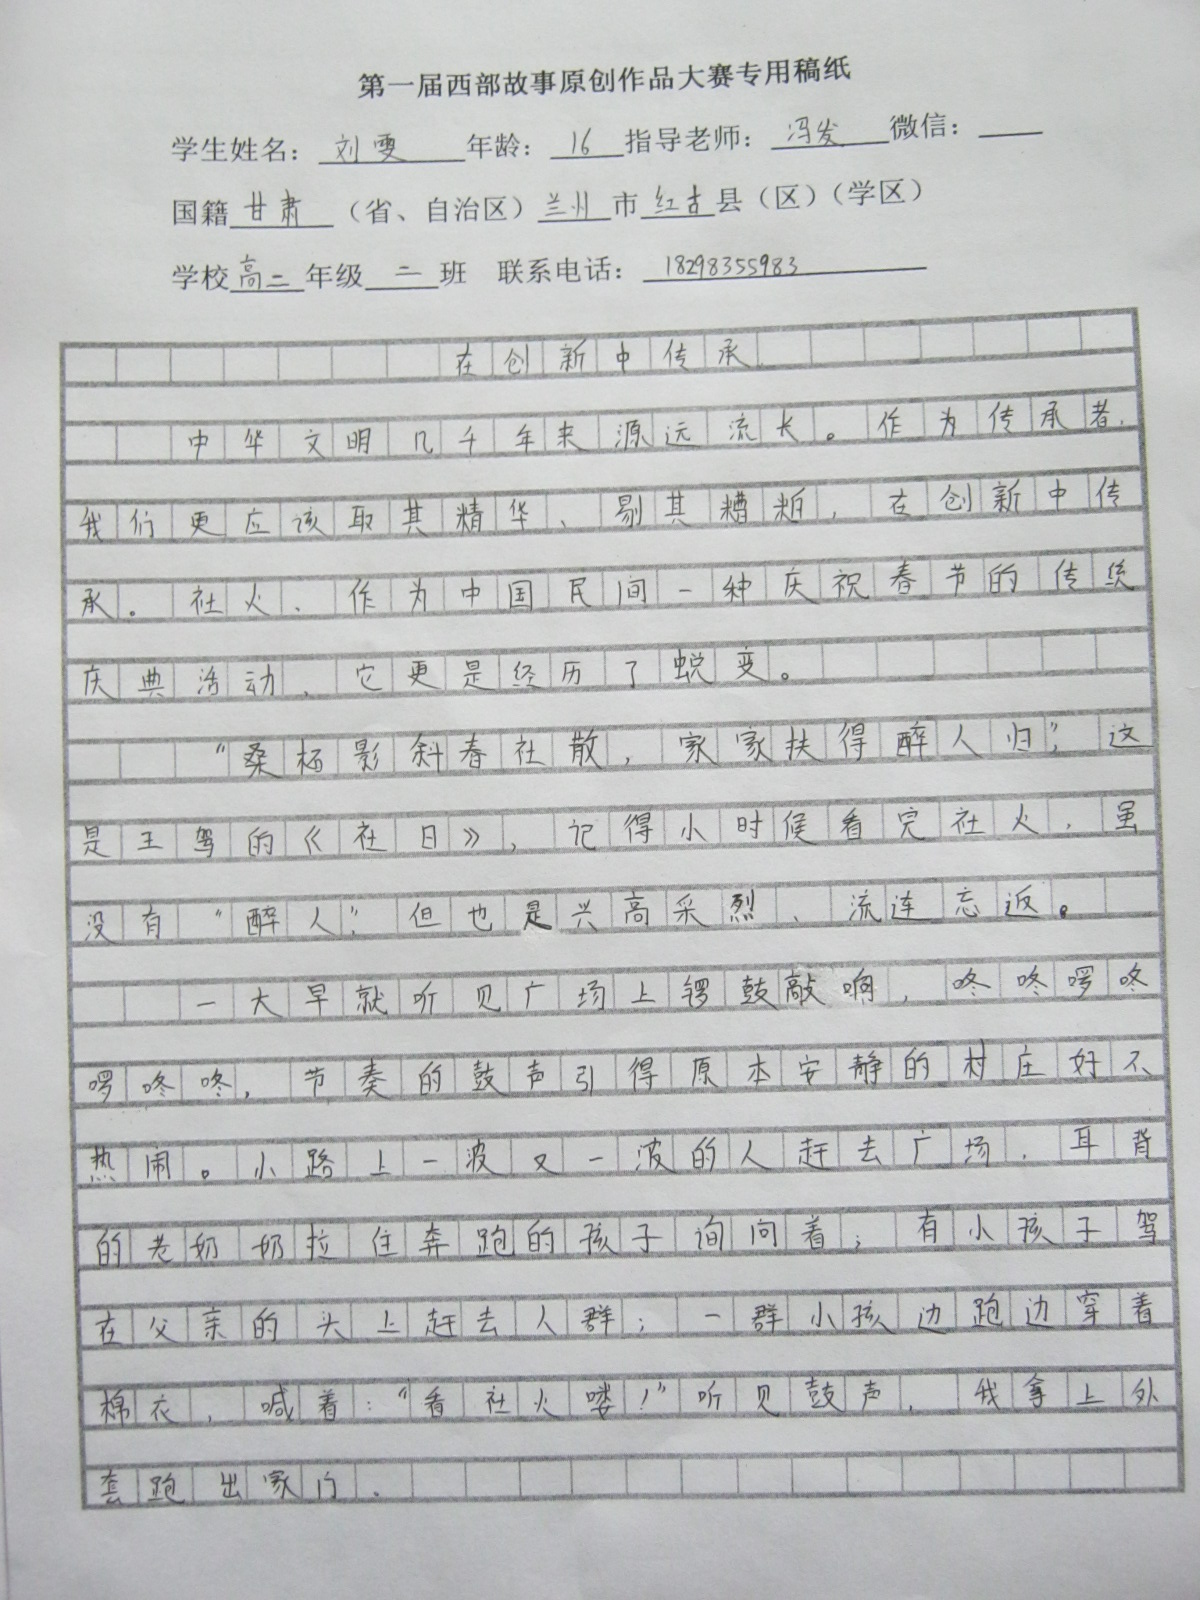 第一届西部故事原创作品大赛专用稿纸
学生姓名：刘雯 年龄：16 指导老师：冯发 微信：
国籍 甘肃 （省、自治区）兰州 市 红古 县（区）（学区）
学校 高二 年级 二 班 联系电话：18298355983
在创新中传承
中华文明几千年来源远流长。作为传承者，
我们更应该取其精华、剔其糟粕，在创新中传
承。社火、作为中国民间一种庆祝春节的传统
庆典活动、它更是经历了蜕变。
“桑柘影斜春社散，家家扶得醉人归”，这
是王驾的《社日》，记得小时候看完社火，虽
没有“醉人”，但也是兴高采烈、流连忘返。
一大早就听见广场上锣鼓敲响，咚咚啰咚
啰咚咚，节奏的鼓声引得原本安静的村庄好不
热闹。小路上一波又一波的人赶去广场，耳背
的老奶奶拉住奔跑的孩子询问着；有小孩子驾
在父亲的头上赶去人群；一群小孩边跑边穿着
棉衣，喊着：“看社火喽！”听见鼓声，我拿上外
套跑出家门．